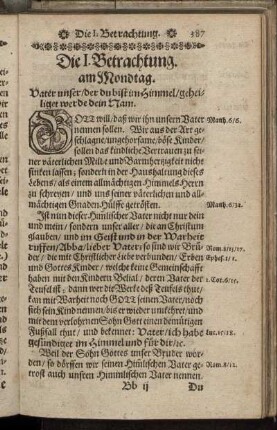 Die I. Betrachtung. 387
Die I. Betrachtung.
am Mondtag.
Vater unser/ der du bist im Himmel/ gehei-
liget werde dein Nam.
GOTT will/ daß wir ihn unsern Vater Matth. 6/6.
nennen sollen. Wir aus der Art ge-
schlagne/ ungehorsame/ böse Kinder/
sollen das kindliche Vertrauen zu sei-
ner väterlichen Milde und Barmhertzigkeit nicht
sincken lassen; sondern in der Haushaltung dieses
Lebens/ als einem allmächtigen Himmels-Herrn
zu schreyen/ und uns seiner väterlichen und all-
mächtigen Gnaden-Hülffe getrösten. Matth. 6/32.
Ist nun dieser Himlischer Vater nicht nur dein
und mein/ sondern unser aller/ die an Christum
glauben/ und im Geist und in der Warheit
ruffen/ Abba/ lieber Vater: so sind wir Brü- Rom. 8/15.
der/ die mit Christlicher Liebe verbunden/ Erben Ephes. 1/5.
und Gottes Kinder/ welche keine Gemeinschafft
haben mit den Kindern Belial/ deren Vater der 2. Cor. 6/15.
Teufel ist: dann wer die Werke deß Teufels thut/
kan mit Warheit noch GOTT seinen Vater/ noch
sich sein Kind nennen/ bis er wieder umkehret/ und
mit dem verlohrnen Sohn Gott einen demütigen
Fußfall thut/ und bekennet: Vater/ ich habe Luc. 15/18.
gesündiget im Himmel und für dir/ ꝛc.
Weil der Sohn Gottes unser Bruder wor-
den/ so dörffen wir seinen Himlischen Vater ge- Rom. 8/12.
trost auch unsern Himmlischen Vater nennen.
Bb ij Du